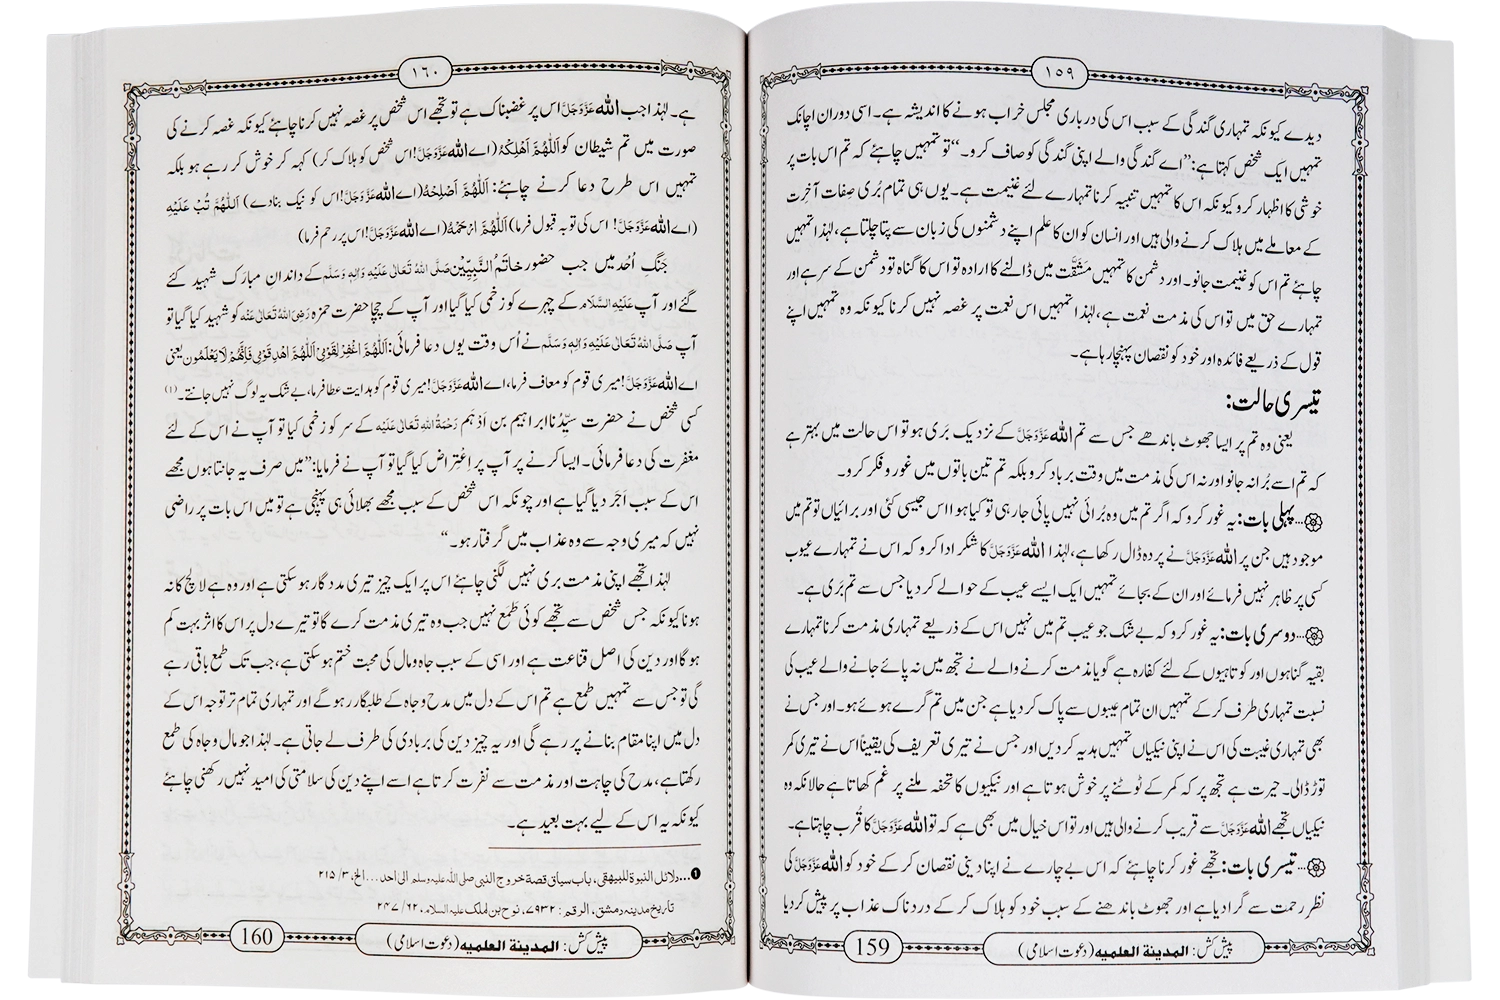 ١٥٩
دیدے کیونکہ تمہاری گندگی کے سبب اس کی درباری مجلس خراب ہونے کا اندیشہ ہے۔ اسی دوران اچانک
تمہیں ایک شخص کہتا ہے: ”اے گندگی والے اپنی گندگی کو صاف کرو۔“ تو تمہیں چاہئے کہ تم اس بات پر
خوشی کا اظہار کرو کیونکہ اس کا تمہیں تنبیہ کرنا تمہارے لئے غنیمت ہے۔ یوں ہی تمام بُری صفات آخرت
کے معاملے میں ہلاک کرنے والی ہیں اور انسان کو ان کا علم اپنے دشمنوں کی زبان سے پتا چلتا ہے، لہٰذا تمہیں
چاہئے تم اس کو غنیمت جانو۔ اور دشمن کا تمہیں مشقّت میں ڈالنے کا ارادہ تو اس کا گناہ تو دشمن کے سر ہے اور
تمہارے حق میں تو اس کی مذمت نعمت ہے، لہٰذا تمہیں اس نعمت پر غصہ نہیں کرنا کیونکہ وہ تمہیں اپنے
قول کے ذریعے فائدہ اور خود کو نقصان پہنچا رہا ہے۔
تیسری حالت:
یعنی وہ تم پر ایسا جھوٹ باندھے جس سے تم اللہ عَزَّوَجَلَّ کے نزدیک بَری ہو تو اس حالت میں بہتر ہے
کہ تم اسے بُرا نہ جانو اور نہ اس کی مذمت میں وقت برباد کرو بلکہ تم تین باتوں میں غور و فکر کرو۔
...پہلی بات: یہ غور کرو کہ اگر تم میں وہ بُرائی نہیں پائی جا رہی تو کیا ہوا اس جیسی کئی اور برائیاں تو تم میں
موجود ہیں جن پر اللہ عَزَّوَجَلَّ نے پردہ ڈال رکھا ہے، لہٰذا اللہ عَزَّوَجَلَّ کا شکر ادا کرو کہ اس نے تمہارے عیوب
کسی پر ظاہر نہیں فرمائے اور ان کے بجائے تمہیں ایک ایسے عیب کے حوالے کر دیا جس سے تم بَری ہے۔
...دوسری بات: یہ غور کرو کہ بے شک جو عیب تم میں نہیں اس کے ذریعے تمہاری مذمت کرنا تمہارے
بقیہ گناہوں اور کوتاہیوں کے لئے کفارہ ہے گویا مذمت کرنے والے نے تجھ میں نہ پائے جانے والے عیب کی
نسبت تمہاری طرف کر کے تمہیں ان تمام عیبوں سے پاک کر دیا ہے جن میں تم گرے ہوئے ہو۔ اور جس نے
بھی تمہاری غیبت کی اس نے اپنی نیکیاں تمہیں ہدیہ کر دیں اور جس نے تیری تعریف کی یقیناً اس نے تیری کمر
توڑ ڈالی۔ حیرت ہے تجھ پر کہ کمر کے ٹوٹنے پر خوش ہوتا ہے اور نیکیوں کا تحفہ ملنے پر غم کھاتا ہے حالانکہ وہ
نیکیاں تجھے اللہ عَزَّوَجَلَّ سے قریب کرنے والی ہیں اور تو اس خیال میں بھی ہے کہ تو اللہ عَزَّوَجَلَّ کا قُرب چاہتا ہے۔
...تیسری بات: تجھے غور کرنا چاہئے کہ اس بے چارے نے اپنا دینی نقصان کر کے خود کو اللہ عَزَّوَجَلَّ کی
نظرِ رحمت سے گرا دیا ہے اور جھوٹ باندھنے کے سبب خود کو ہلاک کر کے دردناک عذاب پر پیش کر دیا
پیش کش: المدینة العلمیه (دعوت اسلامی)
159
١٦٠
ہے۔ لہٰذا جب اللہ عَزَّوَجَلَّ اس پر غضبناک ہے تو تجھے اس شخص پر غصہ نہیں کرنا چاہئے کیونکہ غصہ کرنے کی
صورت میں تم شیطان کو اَللّٰهُمَّ اَهْلِكْهُ (اے اللہ عَزَّوَجَلَّ! اس شخص کو ہلاک کر) کہہ کر خوش کر رہے ہو بلکہ
تمہیں اس طرح دعا کرنے چاہئے: اَللّٰهُمَّ اَصْلِحْهُ (اے اللہ عَزَّوَجَلَّ! اس کو نیک بنا دے) اَللّٰهُمَّ تُبْ عَلَيْهِ
(اے اللہ عَزَّوَجَلَّ! اس کی توبہ قبول فرما) اَللّٰهُمَّ ارْحَمْهُ (اے اللہ عَزَّوَجَلَّ! اس پر رحم فرما)
جنگِ اُحُد میں جب حضور خاتَمُ النَّبِیِّیْن صَلَّى اللهُ تَعَالٰى عَلَيْهِ وَاٰلِهٖ وَسَلَّم کے دندانِ مبارک شہید کئے
گئے اور آپ عَلَيْهِ السَّلَام کے چہرے کو زخمی کیا گیا اور آپ کے چچا حضرت حمزہ رَضِيَ اللهُ تَعَالٰى عَنْه کو شہید کیا گیا تو
آپ صَلَّى اللهُ تَعَالٰى عَلَيْهِ وَاٰلِهٖ وَسَلَّم نے اُس وقت یوں دعا فرمائی: اَللّٰهُمَّ اغْفِرْ لِقَوْمِيْ اَللّٰهُمَّ اهْدِ قَوْمِيْ فَاِنَّهُمْ لَا يَعْلَمُوْن یعنی
اے اللہ عَزَّوَجَلَّ! میری قوم کو معاف فرما، اے اللہ عَزَّوَجَلَّ! میری قوم کو ہدایت عطا فرما، بے شک یہ لوگ نہیں جانتے۔ (۱)
کسی شخص نے حضرت سیِّدُنا ابراہیم بن اَدْہَم رَحْمَةُ اللهِ تَعَالٰى عَلَيْه کے سر کو زخمی کیا تو آپ نے اس کے لئے
مغفرت کی دعا فرمائی۔ ایسا کرنے پر آپ پر اِعتِراض کیا گیا تو آپ نے فرمایا: ”میں صرف یہ جانتا ہوں مجھے
اس کے سبب اَجر دیا گیا ہے اور چونکہ اس شخص کے سبب مجھے بھلائی ہی پہنچی ہے تو میں اس بات پر راضی
نہیں کہ میری وجہ سے وہ عذاب میں گرفتار ہو۔“
لہٰذا تجھے اپنی مذمت بری نہیں لگنی چاہئے اس پر ایک چیز تیری مددگار ہو سکتی ہے اور وہ ہے لالچ کا نہ
ہونا کیونکہ جس شخص سے تجھے کوئی طمع نہیں جب وہ تیری مذمت کرے گا تو تیرے دل پر اس کا اثر بہت کم
ہو گا اور دین کی اصل قناعت ہے اور اسی کے سبب جاہ و مال کی محبت ختم ہو سکتی ہے، جب تک طمع باقی رہے
گی تو جس سے تمہیں طمع ہے تم اس کے دل میں مدح و جاہ کے طلبگار رہو گے اور تمہاری تمام تر توجہ اس کے
دل میں اپنا مقام بنانے پر رہے گی اور یہ چیز دین کی بربادی کی طرف لے جاتی ہے۔ لہٰذا جو مال و جاہ کی طمع
رکھتا ہے، مدح کی چاہت اور مذمت سے نفرت کرتا ہے اسے اپنے دین کی سلامتی کی امید نہیں رکھنی چاہئے
کیونکہ یہ اس کے لیے بہت بعید ہے۔
❶...دلائل النبوة للبيهقى، باب سياق قصة خروج النبى صلى الله عليه وسلم الى احد... الخ، ۳/ ۲۱۵
تاريخ مدينه دمشق، الرقم: ۷۹۳۲، نوح بن لمك عليه السلام، ۶۲/ ۲۴۷
پیش کش: المدینة العلمیه (دعوت اسلامی)
160